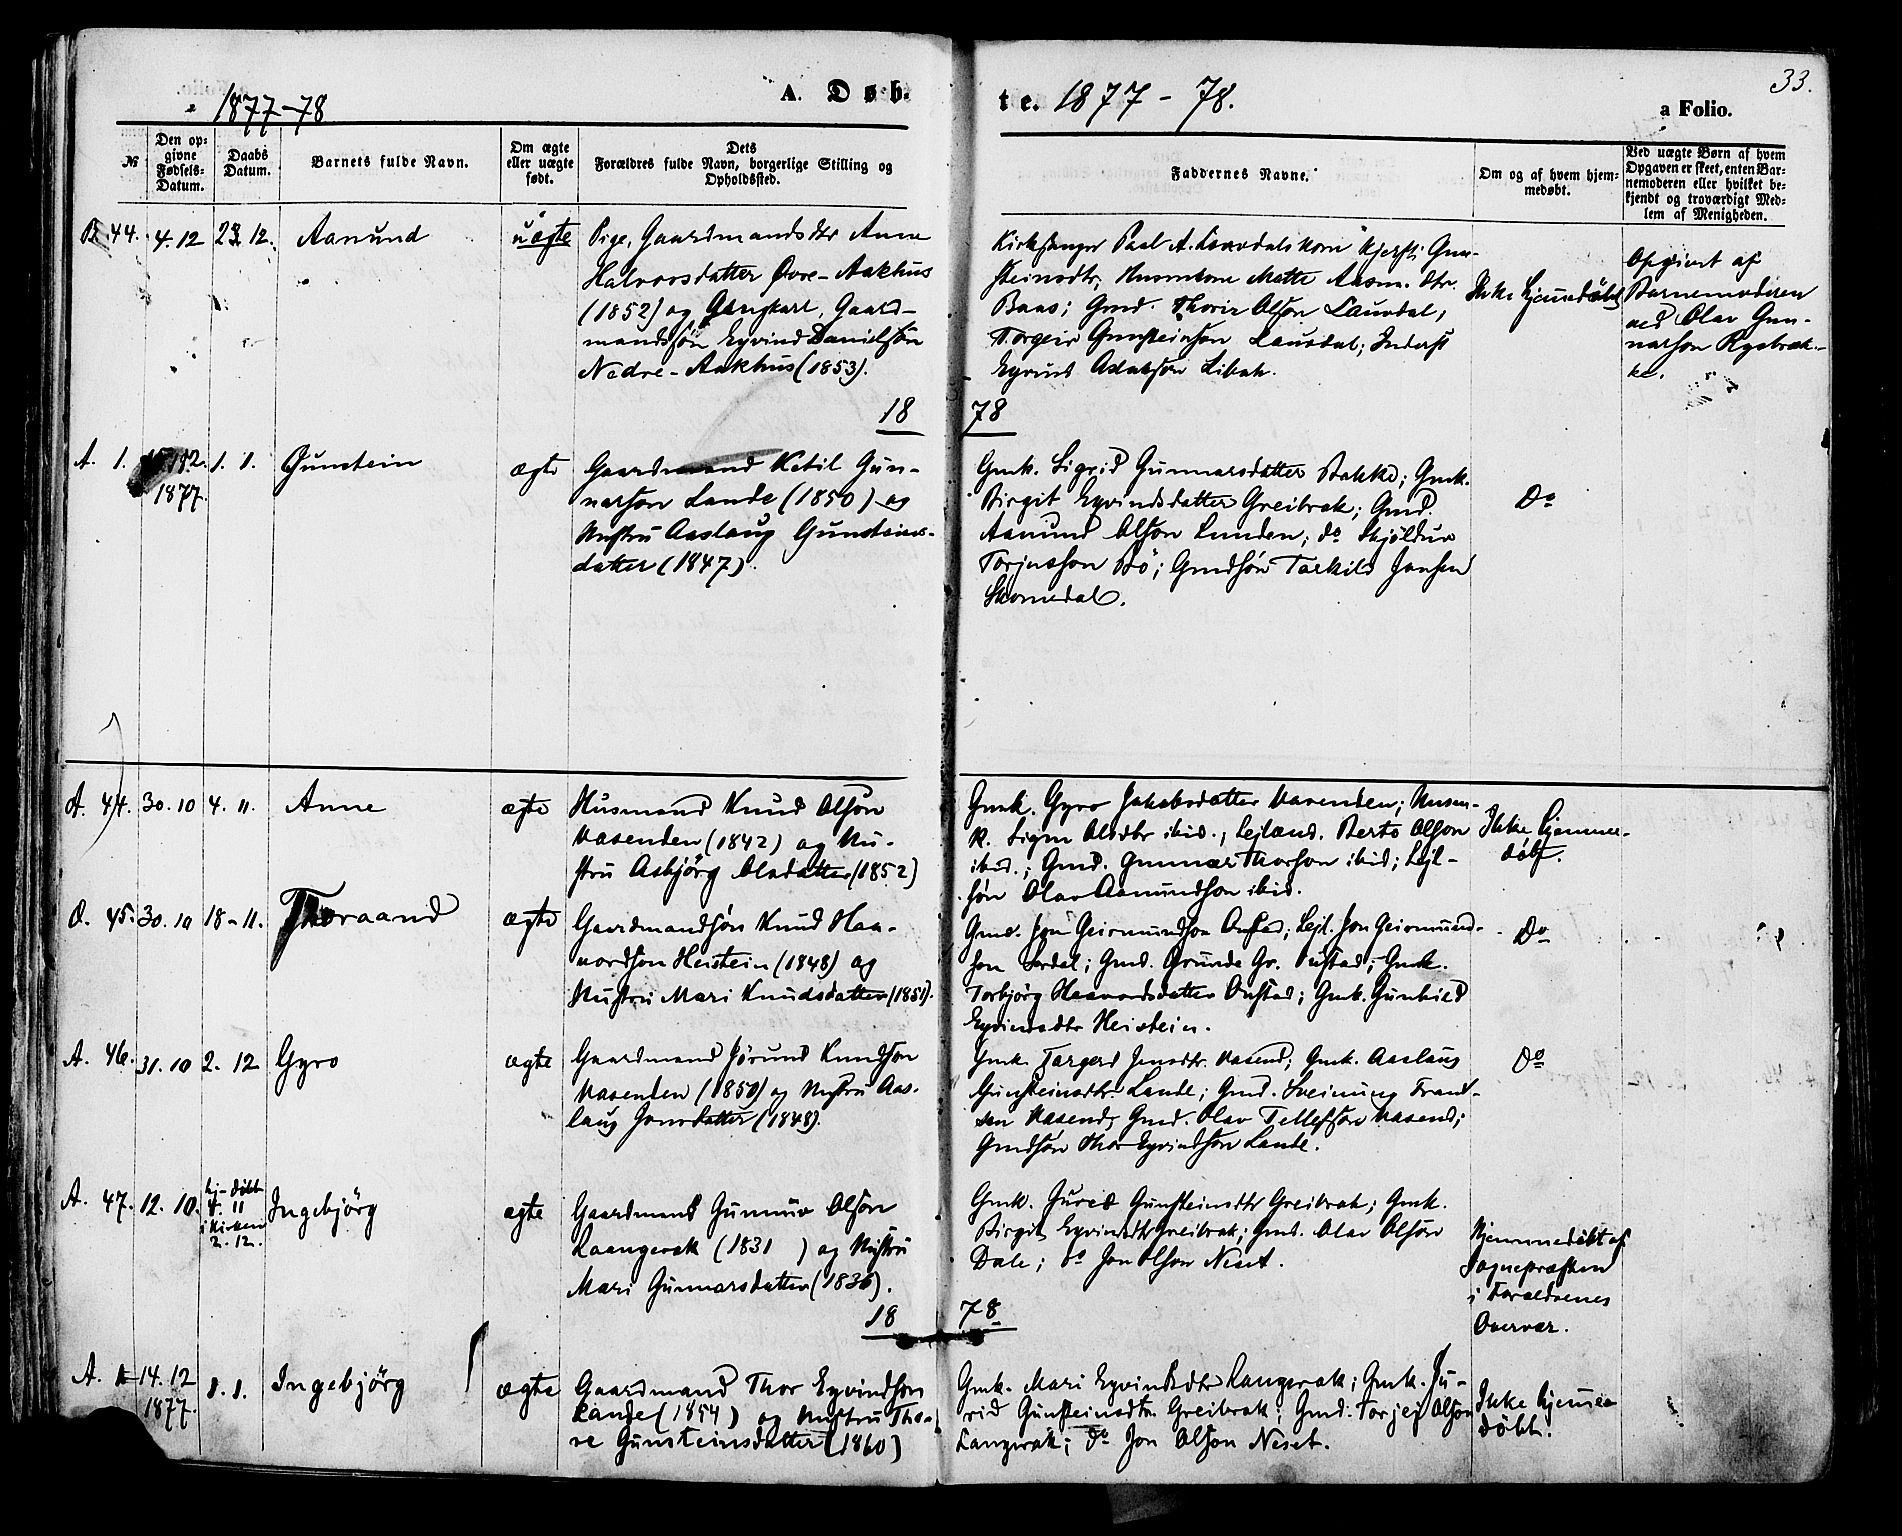 33.
1877-78
A. Døb-
te. 1877-78.
a Folio.
№
Den op-
givne
Fødsels-
Datum.
Daabs
Datum.
Barnets fulde Navn.
Om ægte
eller uægte
født.
Dets
Forældres fulde Navn, borgerlige Stilling og
Opholdssted.
Faddernes Navne.
Om og af hvem hjem-
medøbt.
Ved uægte Børn af hvem
Opgaven er skeet, enten Bar-
nemoderen eller hvilket be-
kjendt og troværdigt Med-
lem af Menigheden.
44. 4.12 23.12. Aanund uægte
Pige, Gaardmandsdtr Anne
Halvorsdatter Øvre-Aakhus
(1852) og Ungkarl, Gaard-
mandssøn Eyvind Danielsøn
Nedre-Aakhus (1853).
Kirkesanger Paal A. Lauvdals Kone Kjersti Gun-
steinsdtr; Huusmkone Mette Aasm. dtr.
Baas; Gmd. Thorer Olsøn Lauvdal;
Torgeir Gunsteinsøn Lauvdal; Inderst
Eyvind Libak.
Ikke hjemmedøbt
Opgivet af
Barnemoderen
ved Olav Gun-
narson
18 78
A. 1. 12. 1877. 1. 1. Gunstein ægte
Gaardmand Ketil Gun-
narson Lande (1850) og
Hustru Aaslaug Gunsteins-
datter (1847).
Gmk. Sigrid Gunnarsdatter Bakke; Gmk.
Birgit Eyvindsdatter Greibrok; Gmd.
Aanund Olson Lunden; do Skjöldur
Torjusson Bö; Gmdsøn Tarkild Jonsen
Skomedal.
Do
A. 44. 30.10 4. 11. Anne ægte
Husmand Knud Olsøn
Vasenden (1842) og Hu-
stru Asbjörg Olsdatter (1852)
Gmk. Gyro Jakobsdatter Vasenden; Husm-
k. Signe Olsdtr ibid.; Lejlænd. Berto Olson
ibid.; Gmd. Gunnar Thorson ibid; Lejl-
søn Olav Aanundson ibid.
Ikke hjemme-
døbt.
45. 30.10 18-11. Thoraand ægte
Gaardmandsøn Knud Haa-
vordson Heistein (1848) og
Hustru Mari Knudsdatter (1851).
Gmd. Jon Geirmundson Onstad; Lejl. Jon Geirmund-
son; Gmd. Grunde Gr. Onstad; Gmk.
Torbjörg Haavordsdatter Onstad; Gmk. Gunhild
Eyvindsdtr Heistein.
Do
A. 46. 31.10 2. 12 Gyro ægte
Gaardmand Jörund Knudson
Vasenden (1850) og Hustru Aas-
laug Jonsdatter (1848).
Gmk. Targerd Jonsdtr. Vasend; Gmk. Aaslaug
Gunsteinsdtr. Lande; Gmd. Sveinung
Vasend; Gmd. Olav Tellefson Vasend;
Gmdsøn Thor Eyvindson Lande.
Do
A. 47. 12. 10. hj-døbt
4. 11
i Kirken
2. 12.
Ingebjörg ægte
Gaardmand Gunnuv Olsøn
Laangerak (1831) og Hustru
Mari Gunnarsdatter (1836).
Gmk. Jured Gunsteinsdtr Greibrok; Gmk.
Birgit Eyvindsdtr Greibrok; Gmd. Olav Olson
Dale; do Jon Olson Neset.
Hjemmedøbt af
Sognepræsten
i Forældrenes
Overvær.
18 78
A. 14.12 1877. 1. 1. Ingebjörg ægte
Gaardmand Thor Eyvindson
Lande (1854) og Hustru Tho-
re Gunsteinsdatter (1860)
Gmk. Mari Eyvindsdtr Langerak; Gmk. Ju-
rid Gunsteinsdtr. Greibrok; Gmd. Torjej Olson
Langerak; do Jon Olson Neset.
Ikke hjemme
døbt.